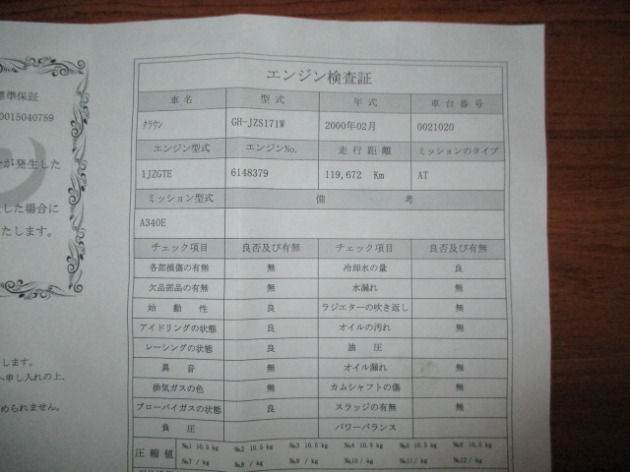 標準保証
0015040759
が発生した
した場合に
たします。
します。
へ申し入れの上、
められません。
エンジン検査証
車名 型式 年式 車台番号
クラウン GH-JZS171W 2000年02月 0021020
エンジン型式 エンジンNo. 走行距離 ミッションのタイプ
1JZGTE 6148379 119,672 Km AT
ミッション型式 備考
A340E
チェック項目 良否及び有無 チェック項目 良否及び有無
各部損傷の有無 無 冷却水の量 良
欠品部品の有無 無 水漏れ 無
始動性 良 ラジエターの吹き返し 無
アイドリングの状態 良 オイルの汚れ 無
レーシングの状態 良 油圧
異音 無 オイル漏れ 無
排気ガスの色 無 カムシャフトの傷 無
ブローバイガスの状態 良 スラッジの有無 無
負圧 パワーバランス
圧縮値 №1 10.5 kg №2 10.5 kg №3 10.5 kg №4 10.5 kg №5 10.5 kg №6 10.5 kg
№7 / kg №8 / kg №9 / kg №10/ kg №11/ kg №12/ kg